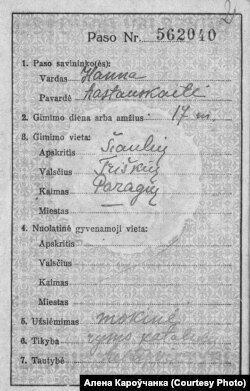 2
Paso Nr. 562040
1. Paso savininko(ės):
Vardas Hanna
Pavardė
2. Gimimo diena arba amžius: 17 m.
3. Gimimo vieta:
Apskritis Šiaulių
Valsčius
Kaimas Paragių
Miestas
4. Nuolatinė gyvenamoji vieta:
Apskritis
Valsčius
Kaimas
Miestas
5. Užsiėmimas mokinė
6. Tikyba rymo katalikų
7. Tautybė
Алена Кароўчанка (Courtesy Photo)